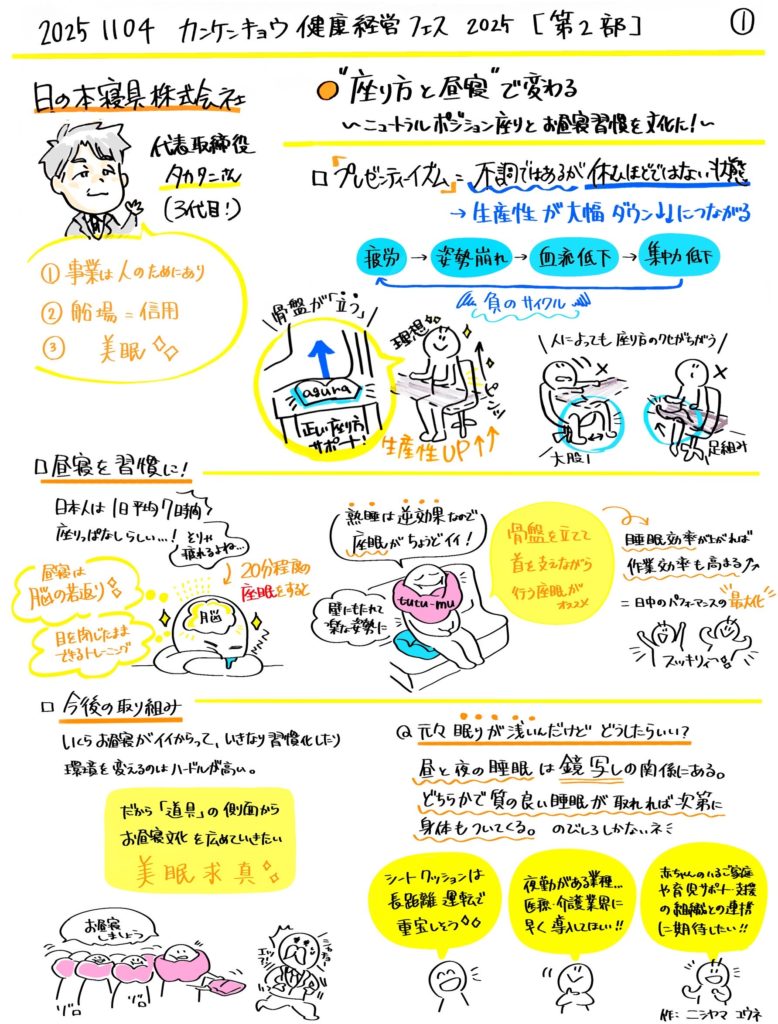 2025 1104 カンケンキョウ 健康経営フェス 2025 [第2部]
①
日の本寝具株式会社
代表取締役
タカタニさん
(3代目!)
①事業は人のためにあり
②船場=信用
③ 美眠
"座り方と昼寝"で変わる
〜ニュートラルポジション座りとお昼寝習慣を文化に!〜
□「プレゼンティーイズム」=不調ではあるが休むほどではない状態
→生産性が大幅ダウン↓↓につながる
疲労→姿勢崩れ→血流低下→集中力低下
負のサイクル
骨盤が「立つ」
asura
正しい座り方
サポート!
理想
ピシッ
生産性UP↑↑
人によっても座り方のクセがちがう
大股!
足組み
□昼寝を習慣に!
日本人は1日平均7時間
座りっぱなしらしい…!
そりゃ
疲れるよね…
昼寝は
脳の若返り
目を閉じたまま
できるトレーニング
→20分程度の
座眠をすると
脳
熟睡は逆効果なので
座眠がちょうどイイ!
tutu-mu
壁にもたれて
楽な姿勢に
骨盤を立てて
首を支えながら
行う座眠が
オススメ
→睡眠効率が上がれば
作業効率も高まる↗↗
=日中のパフォーマンスの最大化
スッキリィ〜!
□今後の取り組み
いくらお昼寝がイイからって、いきなり習慣化したり
環境を変えるのはハードルが高い。
だから「道具」の側面から
お昼寝文化を広めていきたい
美眠求真
お昼寝
しましょう
Q 元々眠りが浅いんだけどどうしたらいい?
昼と夜の睡眠は鏡写しの関係にある。
どちらかで質の良い睡眠が取れれば次第に
身体もついてくる。のびしろしかないネ
シートクッションは
長距離運転で
重宝しそう
夜勤がある業種…
医療・介護業界に
早く導入してほしい!!
赤ちゃんのいるご家庭
や育児サポート・支援
の組織との連携
に期待したい!!
作:ニシヤマ ユウネ